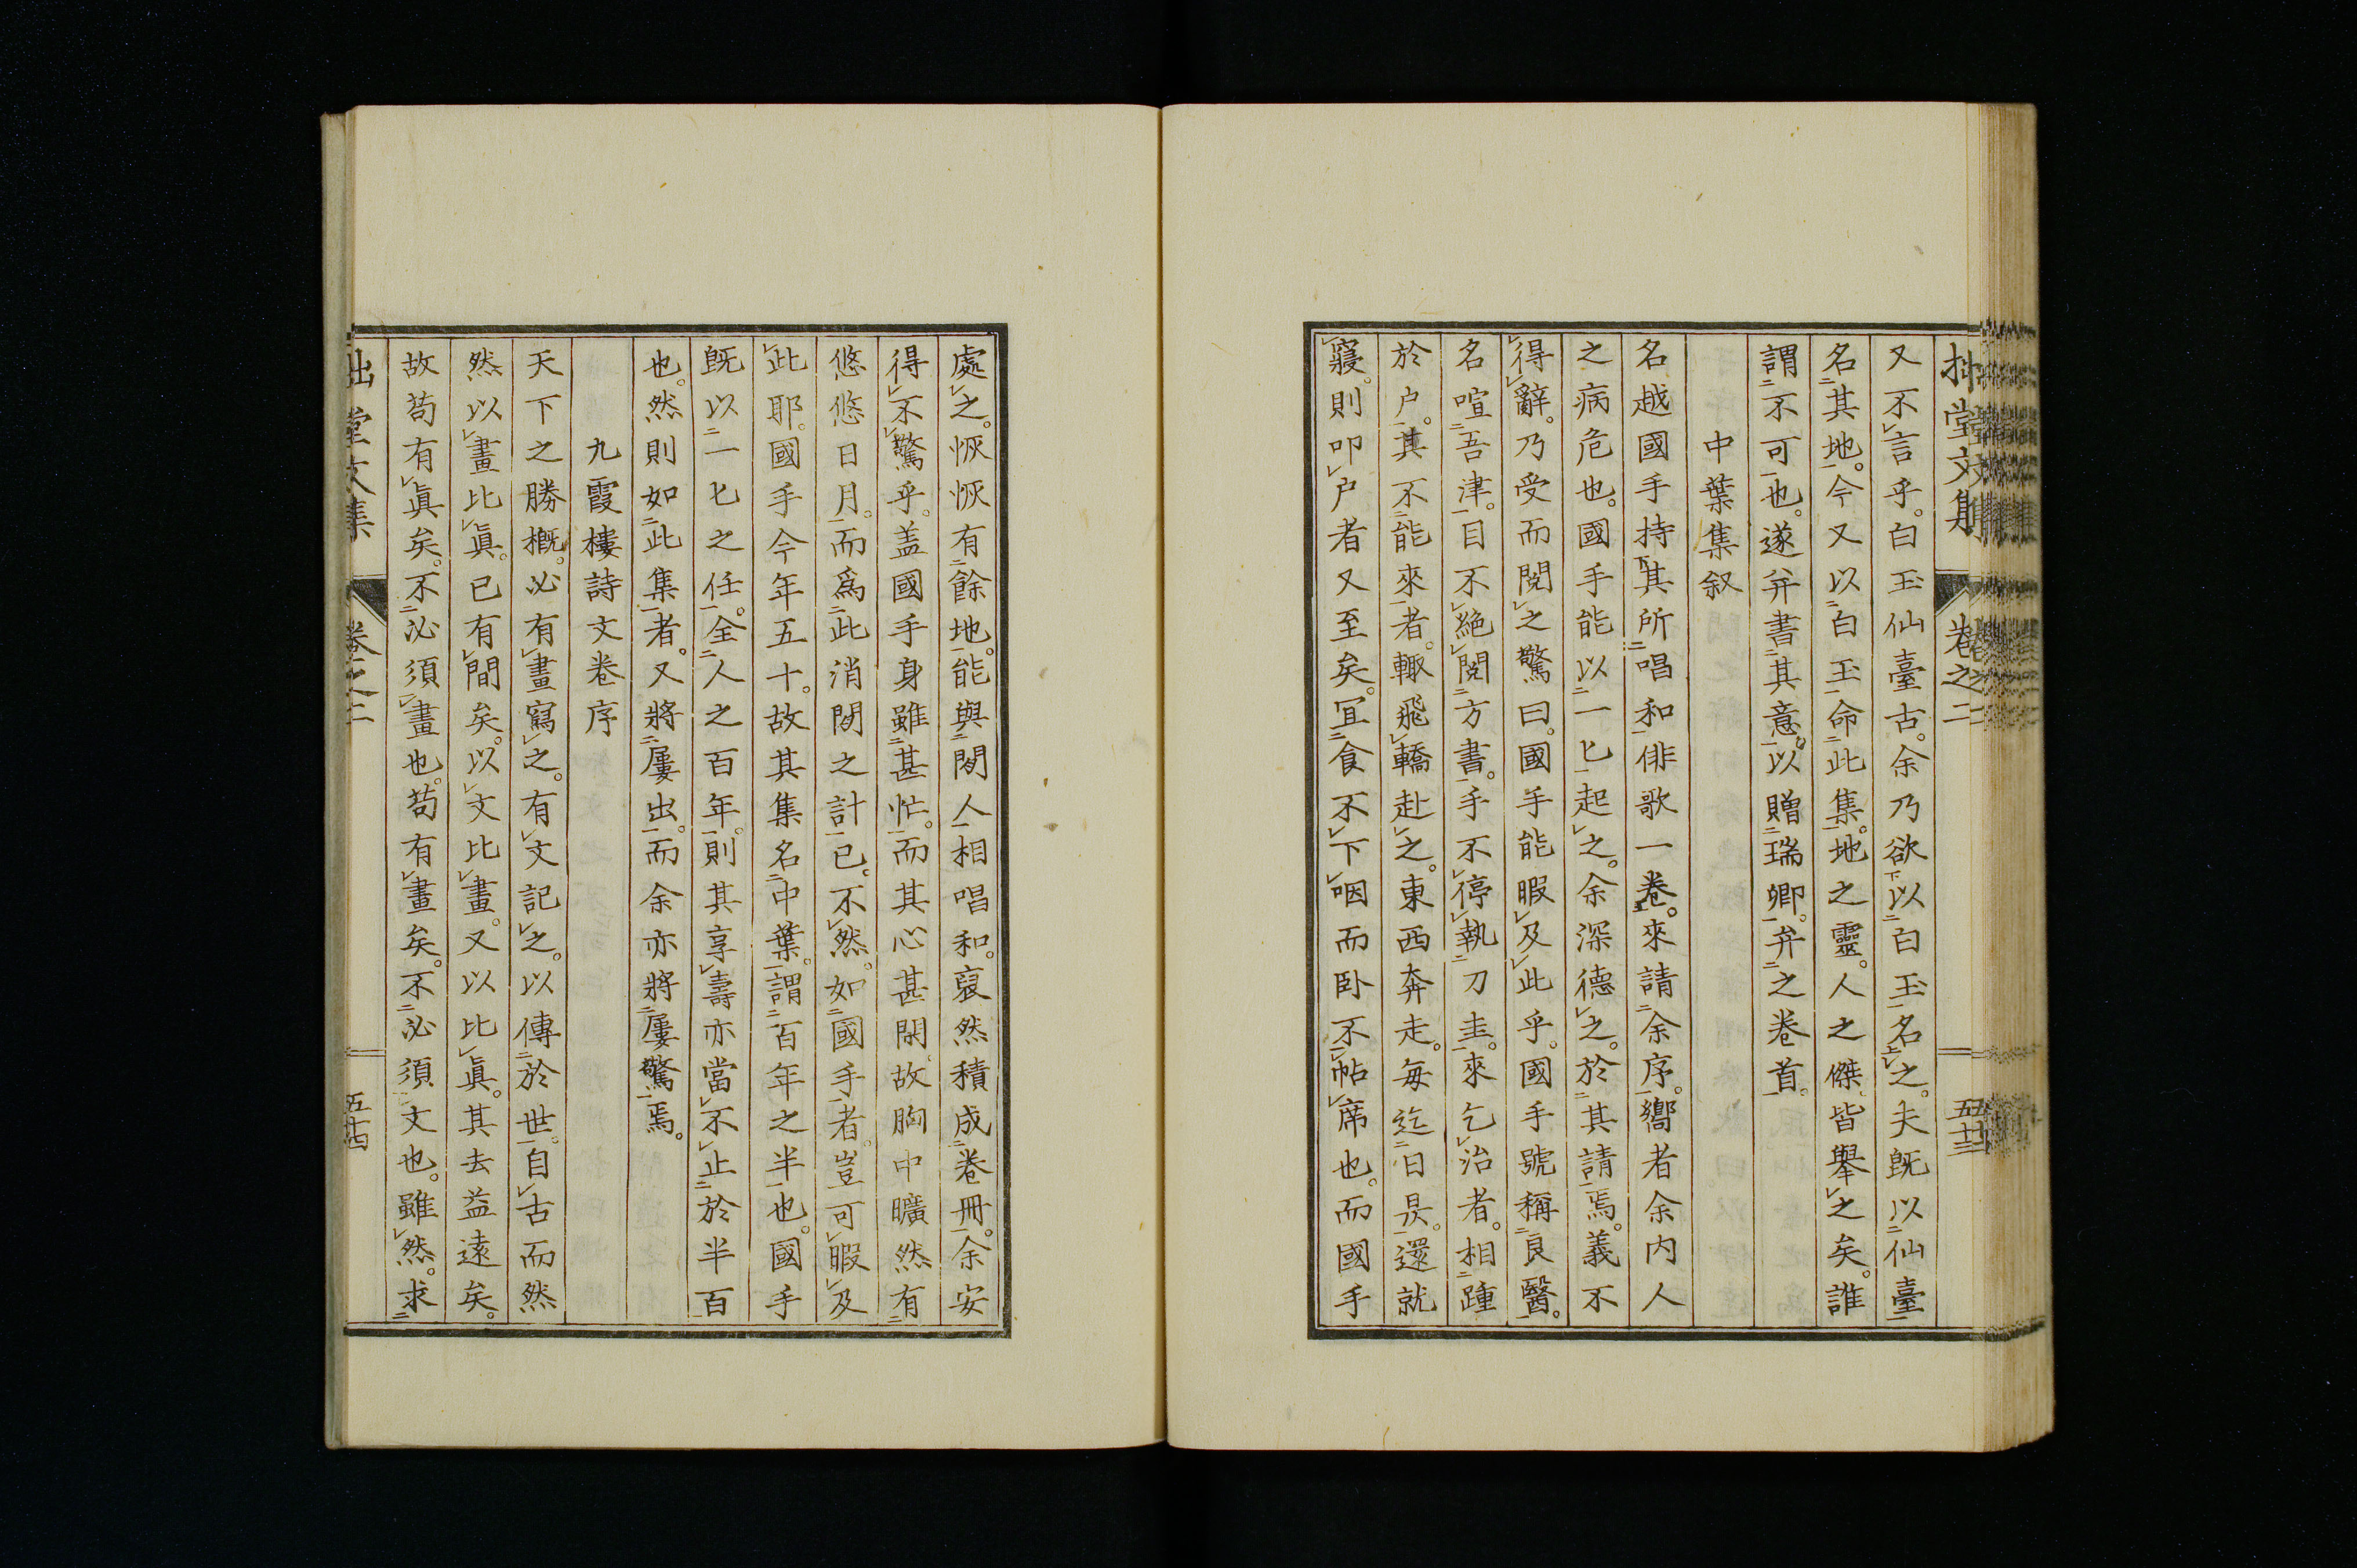 拙堂文集 卷之二 五十三
又不言乎。白玉仙臺古。余乃欲以白玉名之。夫既以仙臺
名其地。今又以白玉命此集。地之靈。人之傑。皆舉之矣。誰
謂不可也。遂并書其意。以贈瑞卿。弁之卷首。
中葉集叙
名越國手持其所唱和俳歌一卷。來請余序。嚮者余内人
之病危也。國手能以一匕起之。余深德之。於其請焉。義不
得辭。乃受而閱之驚曰。國手能暇及此乎。國手號稱良醫。
名喧吾津。目不絶閱方書。手不停執刀圭。來乞治者。相踵
於户。其不能來者。輙飛轎赴之。東西奔走。每迄日昃。還就
寢。則叩户者又至矣。冝食不下咽而卧不帖席也。而國手
處之。恢恢有餘地。能與閒人相唱和。裒然積成卷冊。余安
得不驚乎。盖國手身雖甚忙。而其心甚閑。故胸中曠然有
悠悠日月。而爲此消閒之計已。不然。如國手者。豈可暇及
此耶。國手今年五十。故其集名中葉。謂百年之半也。國手
既以一匕之任。全人之百年。則其享壽亦當不止於半百
也。然則如此集者。又將屢出。而余亦將屢驚焉。
九霞樓詩文卷序
天下之勝概。必有畫寫之。有文記之。以傳於世。自古而然
然以畫比眞。已有間矣。以文比畫。又以比眞。其去益遠矣。
故苟有眞矣。不必須畫也。苟有畫矣。不必須文也。雖然。求
拙堂文集 卷之二 五十四